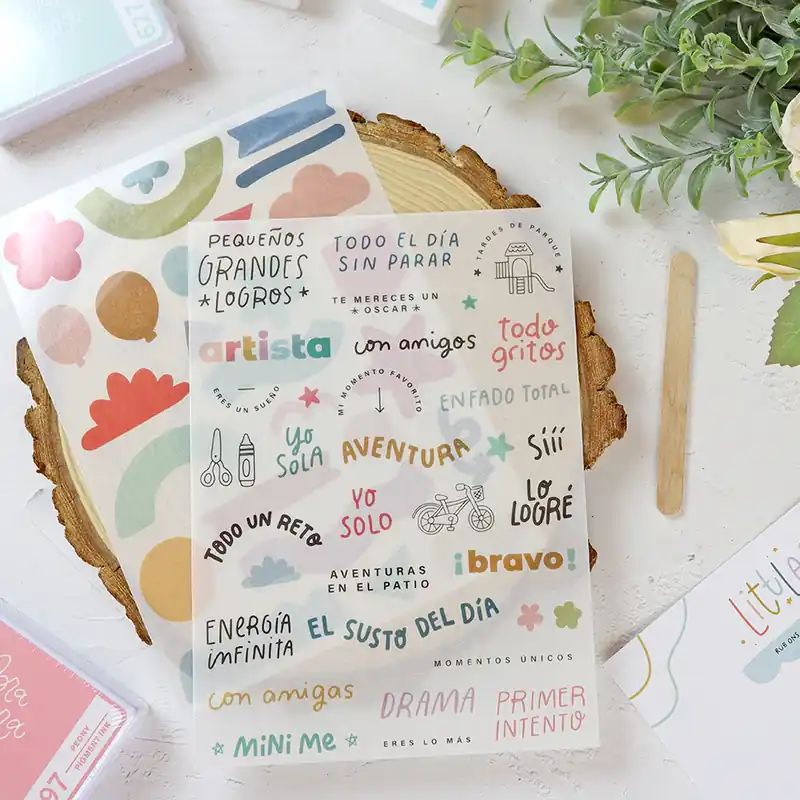 677
PEQUEÑOS
GRANDES
LOGROS
TODO EL DÍA
SIN PARAR
TARDES DE PARQUE
TE MERECES UN
OSCAR
artista
con amigos
todo
gritos
ERES UN SUEÑO
MI MOMENTO FAVORITO
ENFADO TOTAL
YO
SOLA
AVENTURA
SÍÍÍ
TODO UN RETO
YO
SOLO
LO
LOGRÉ
AVENTURAS
EN EL PATIO
¡bravo!
ENERGÍA
INFINITA
EL SUSTO DEL DÍA
MOMENTOS ÚNICOS
con amigas
DRAMA
PRIMER
INTENTO
MINI ME
ERES LO MÁS
RUB ONS
PEONY
PIGMENT INK
97